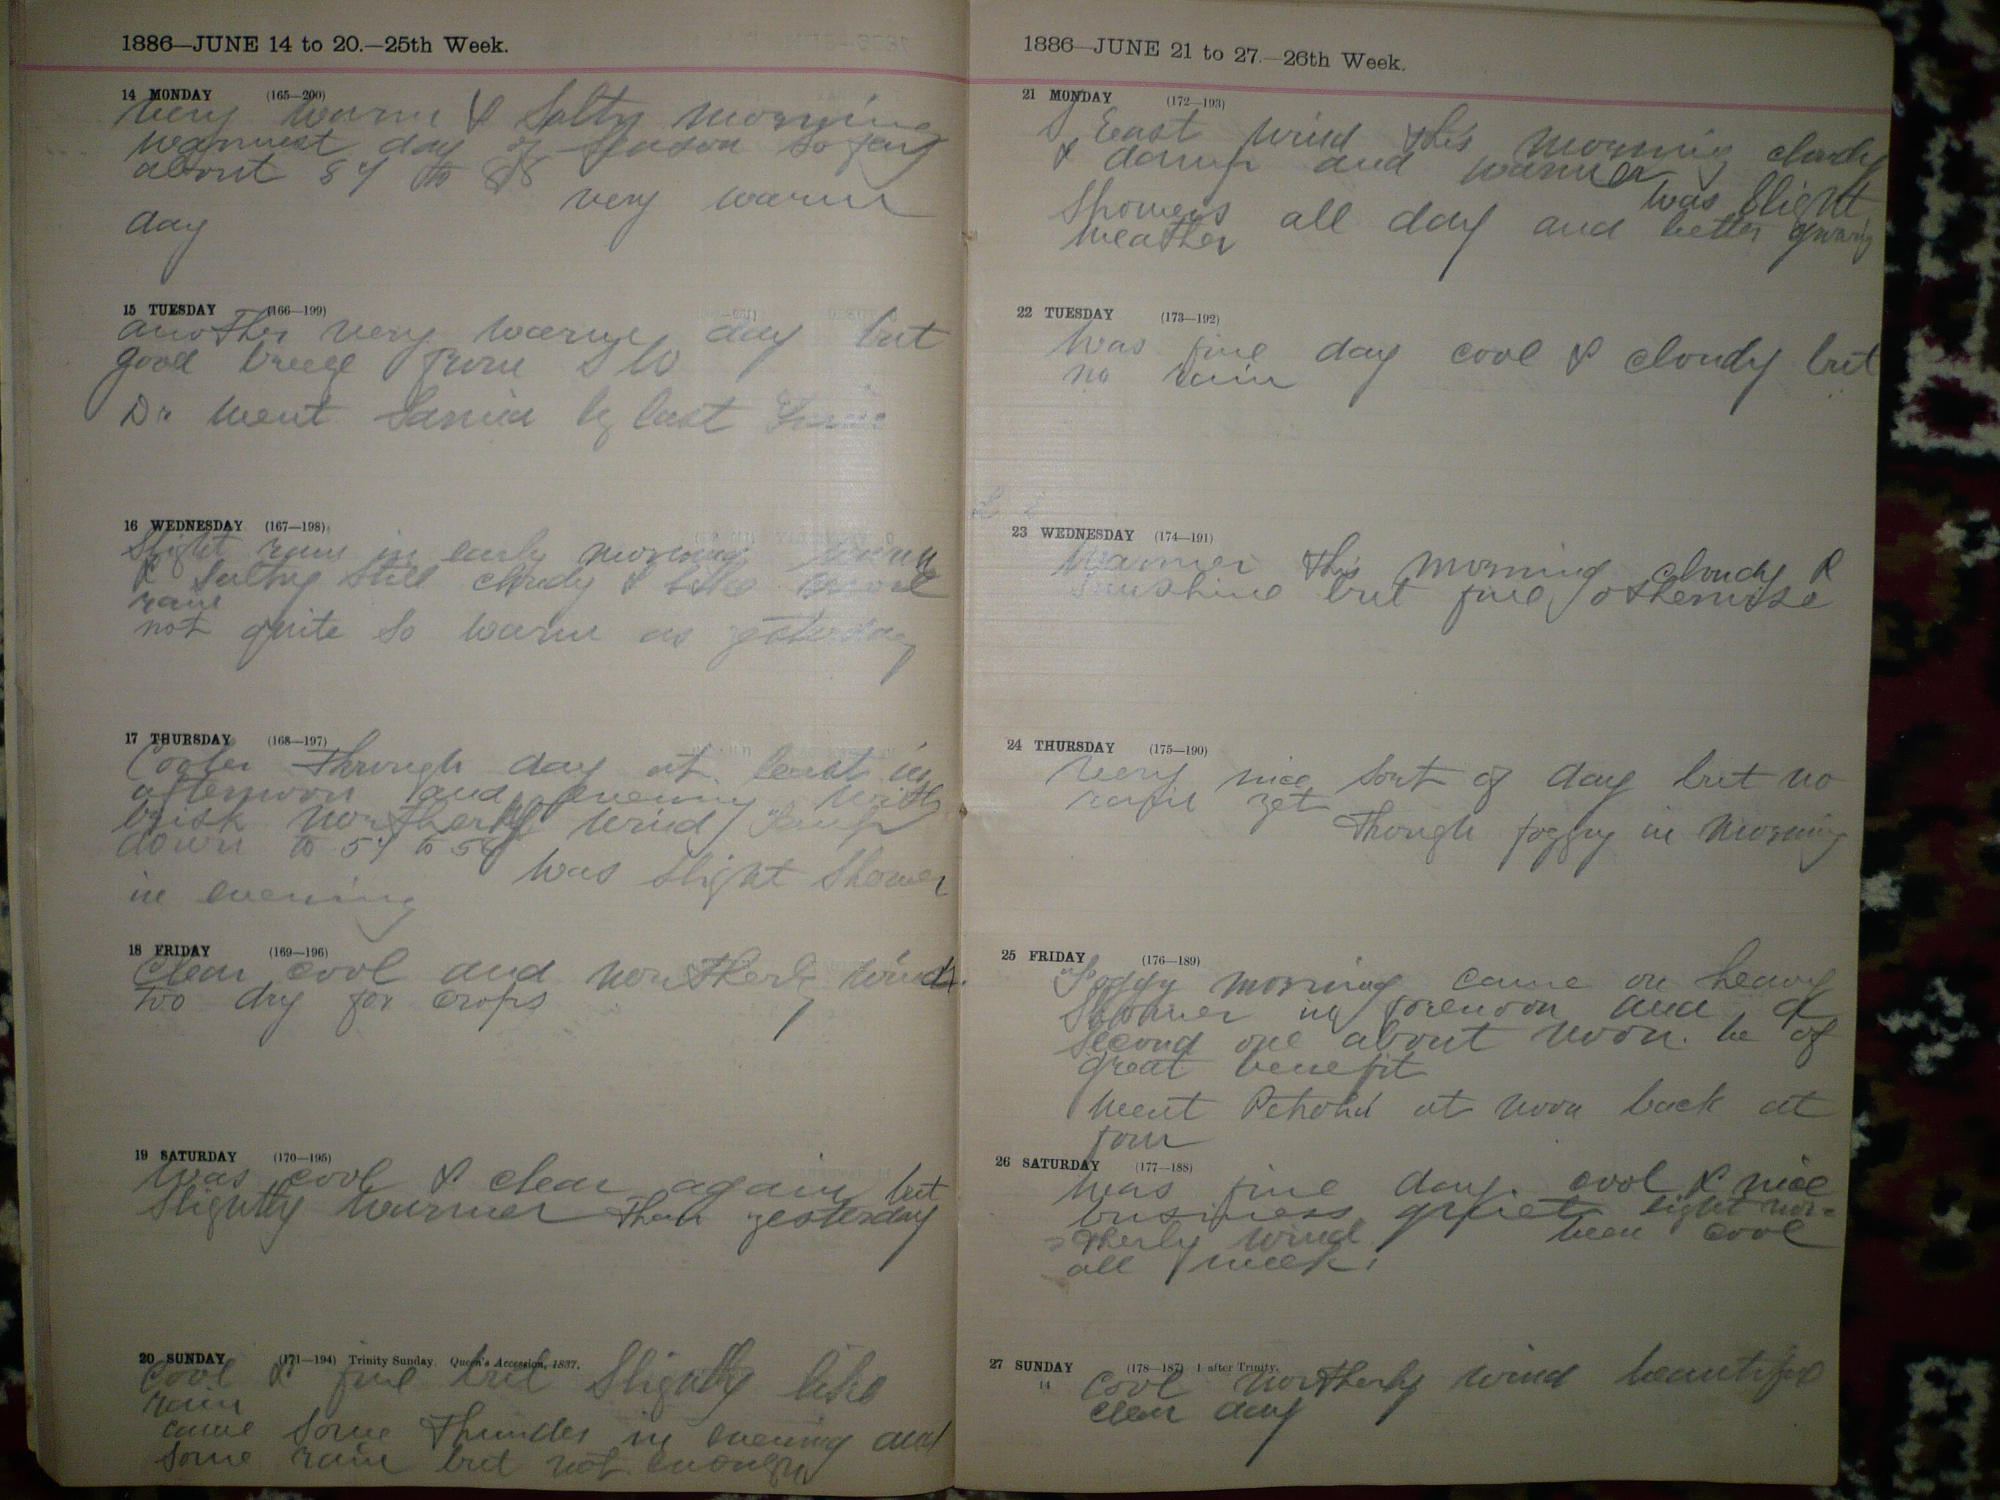 1886—JUNE 14 to 20.—25th Week.
14 MONDAY (165—200)
Very warm & Sulty morning
warmest day of Season so far
about 87 to 88
very warm
day
15 TUESDAY (166—199)
another very warm day but
good breeze from S W
Dr went Sarnia by last
16 WEDNESDAY (167—198)
Slight rain in early morning warm
& Sultry still cloudy & like more
rain
not quite so warm as yesterday
17 THURSDAY (168—197)
Cooler through day at least in
afternoon and evening with
brisk northerly wind
down to 57 to 58
was slight Shower
in evening
18 FRIDAY (169—196)
Clear cool and northerly wind.
too dry for crops
19 SATURDAY (170—195)
Was cool & clear again but
Slightly warmer than yesterday
20 SUNDAY (171—194) Trinity Sunday. Queen's Accession, 1837.
Cool & fine but Slightly like
rain
came some Thunder in evening and
some rain but not enough
1886—JUNE 21 to 27.—26th Week.
21 MONDAY (172—193)
S East wind this morning cloudy
& damp and warmer
was Slight
Showers all day and better growing
weather
22 TUESDAY (173—192)
Was fine day cool & cloudy but
no rain
23 WEDNESDAY (174—191)
Warmer this morning cloudy &
Sunshine but fine otherwise
24 THURSDAY (175—190)
Very nice sort of day but no
rain yet
Though foggy in morning
25 FRIDAY (176—189)
Foggy morning came on heavy
Shower in forenoon and a
second one about noon. be of
great benefit
Went Petrolia at noon back at
four
26 SATURDAY (177—188)
Was fine day. cool & nice
business quiet light nor-
therly wind been cool
all week.
27 SUNDAY (178—187) 1 after Trinity.
14
Cool northerly wind beautiful
clear day